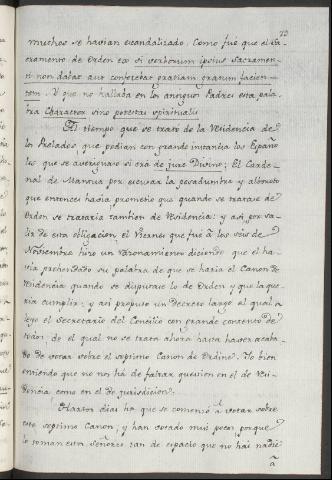 muchos se havian escandalizado. Como fue que el Sa-
cramento de Orden ex vi verborum ipsius Sacramen-
ti non dabat aut conferebat gratiam gratum facien-
tem. Y que no hallaba en los antiguos Padres esta pala-
bra Character sino potestas spiritualis
El tiempo que se trató de la Residencia de
los Prelados, que podian con grande instancia los Españo-
les que se averiguase si era de jure Divino; El Carde-
nal de Mantua por escusar la pesadumbre y alboroto
que entonces havia prometio que quando se tratase de
Orden se trataria tambien de Residencia: y asi por sa-
lir de esta obligacion, el Viernes que fue á los séis de
Noviembre hizo un Razonamiento diciendo que él ha-
via prehendado su palabra de que se haria el Canon de
Residencia quando se disputase lo de Orden y que la que-
ria cumplir; y asi propuso un Decreto largo el qual
leyo el Secretario del Concilio con grande contento de
todos; de el qual no se trata ahora hasta haver acaba-
do de votar sobre el septimo Canon de Ordine. Yo bien
entiendo que no nos há de faltar question en el de Resi-
dencia como en el de jurisdicion.
Hartos dias ha que se comenzó á votar sobre
este septimo Canon; y han votado mui pocos porque
lo toman estos Señores tan de espacio que no hai nadie
á